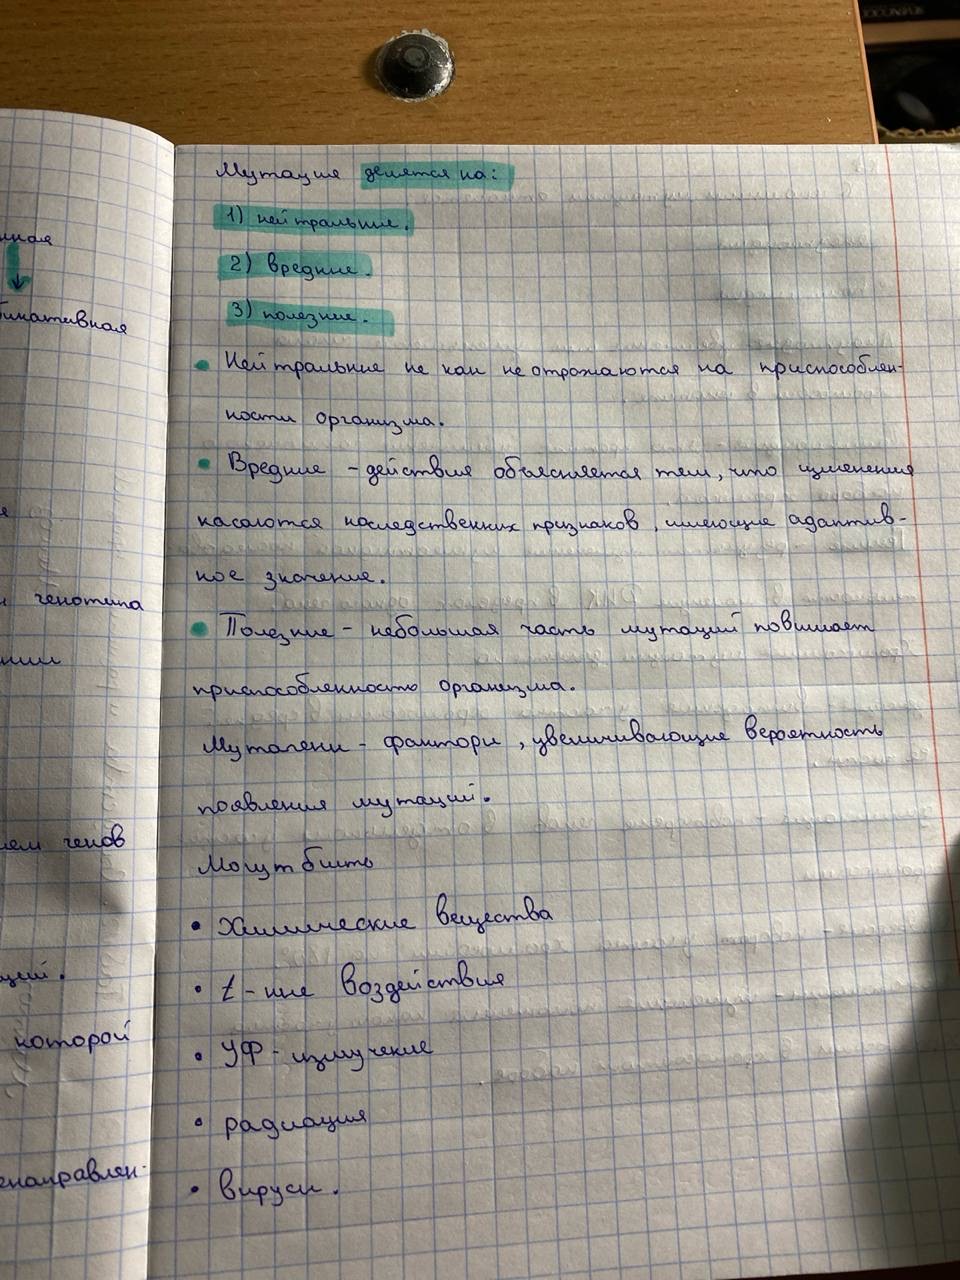 нная
бинативная
я
и генотипа
нии
ием генов
ций.
которой
енаправлен-
Мутация делятся на:
1) нейтральные.
2) вредные.
3) полезные.
• Нейтральные не как не отражаются на приспособлен-
ности организма.
• Вредные - действия объясняется тем, что изменения
касаются наследственных признаков, имеющие адаптив-
ное значение.
• Полезные - небольшая часть мутаций повышает
приспособленность организма.
Мутагены - факторы, увеличивающие вероятность
появления мутаций.
Могут быть
• Химические вещества
• t-ные воздействия
• УФ-излучение
• радиация
• вирусы.